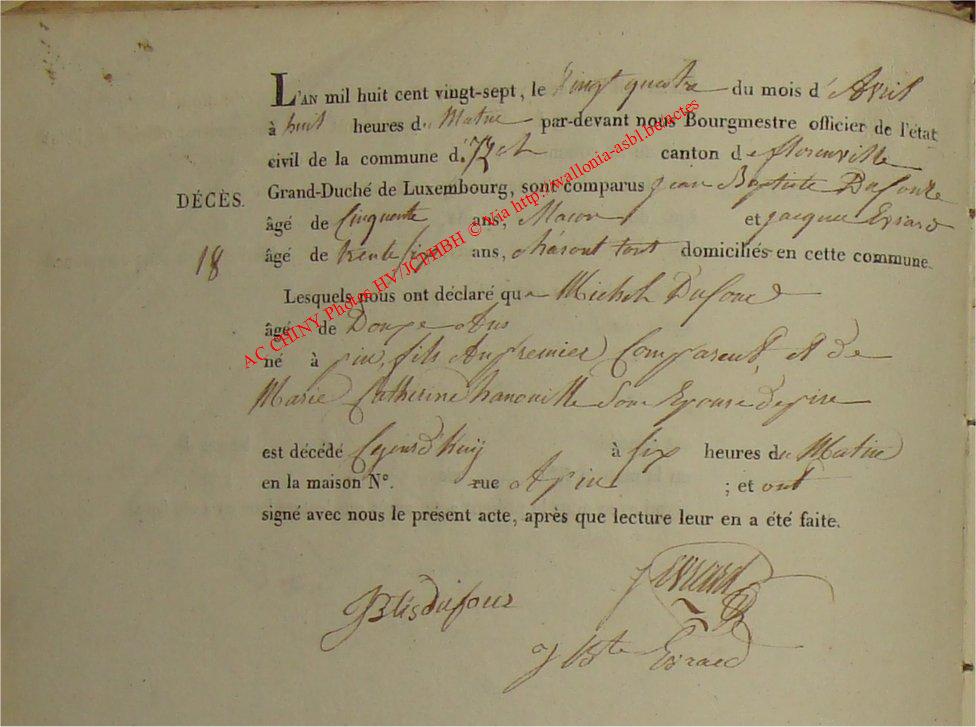 L'AN mil huit cent vingt-sept, le Vingt quatre du mois d'Avril
à huit heures du Matin par-devant nous Bourgmestre officier de l'état
civil de la commune d' canton de florenville
Grand-Duché de Luxembourg, sont comparus jean Baptiste Dufour
DÉCÈS.
âgé de Cinquante ans, Macon et jacque Evrard
18
âgé de trente six ans, tout domiciliés en cette commune.
Lesquels nous ont déclaré que Michel Dufour
âgé de Douze Ans
né à pin, fils Du premier Comparent, et De
Marie Catherine hanouille Son Epouse
est décédé Cejourd'huÿ à six heures du Matin
en la maison N°. rue A pin ; et ont
signé avec nous le présent acte, après que lecture leur en a été faite.
JBtisdufour
J Evrard
J Bte Evrard
AC CHINY Photos HV/JCPHBH © Via http://wallonia-asbl.be/actes